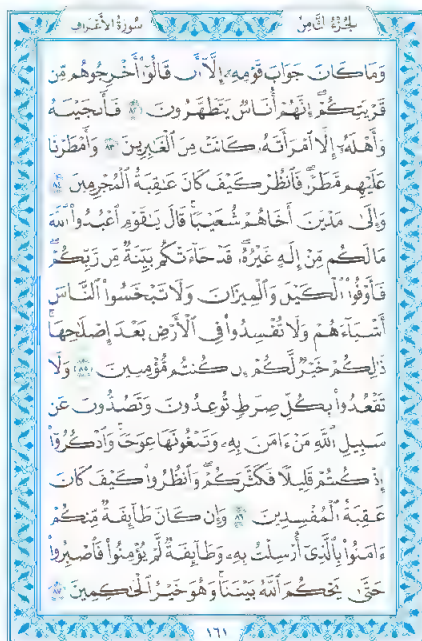 سُورَةُ الْأَعْرَافِ
الجُزْءُ الثَّامِنُ
وَمَا كَانَ جَوَابَ قَوْمِهِۦٓ إِلَّآ أَن قَالُوٓا۟ أَخْرِجُوهُم مِّن
قَرْيَتِكُمْ ۖ إِنَّهُمْ أُنَاسٌ يَتَطَهَّرُونَ ٨٢ فَأَنجَيْنَٰهُ
وَأَهْلَهُۥٓ إِلَّا ٱمْرَأَتَهُۥ كَانَتْ مِنَ ٱلْغَٰبِرِينَ ٨٣ وَأَمْطَرْنَا
عَلَيْهِم مَّطَرًا ۖ فَٱنظُرْ كَيْفَ كَانَ عَٰقِبَةُ ٱلْمُجْرِمِينَ ٨٤
وَإِلَىٰ مَدْيَنَ أَخَاهُمْ شُعَيْبًا ۗ قَالَ يَٰقَوْمِ ٱعْبُدُوا۟ ٱللَّهَ
مَا لَكُم مِّنْ إِلَٰهٍ غَيْرُهُۥ ۖ قَدْ جَآءَتْكُم بَيِّنَةٌ مِّن رَّبِّكُمْ ۖ
فَأَوْفُوا۟ ٱلْكَيْلَ وَٱلْمِيزَانَ وَلَا تَبْخَسُوا۟ ٱلنَّاسَ
أَشْيَآءَهُمْ وَلَا تُفْسِدُوا۟ فِى ٱلْأَرْضِ بَعْدَ إِصْلَٰحِهَا ۚ
ذَٰلِكُمْ خَيْرٌ لَّكُمْ إِن كُنتُم مُّؤْمِنِينَ ٨٥ وَلَا
تَقْعُدُوا۟ بِكُلِّ صِرَٰطٍ تُوعِدُونَ وَتَصُدُّونَ عَن
سَبِيلِ ٱللَّهِ مَنْ ءَامَنَ بِهِۦ وَتَبْغُونَهَا عِوَجًا ۚ وَٱذْكُرُوٓا۟
إِذْ كُنتُمْ قَلِيلًا فَكَثَّرَكُمْ ۖ وَٱنظُرُوا۟ كَيْفَ كَانَ
عَٰقِبَةُ ٱلْمُفْسِدِينَ ٨٦ وَإِن كَانَ طَآئِفَةٌ مِّنكُمْ
ءَامَنُوا۟ بِٱلَّذِىٓ أُرْسِلْتُ بِهِۦ وَطَآئِفَةٌ لَّمْ يُؤْمِنُوا۟ فَٱصْبِرُوا۟
حَتَّىٰ يَحْكُمَ ٱللَّهُ بَيْنَنَا ۚ وَهُوَ خَيْرُ ٱلْحَٰكِمِينَ ٨٧
١٦١